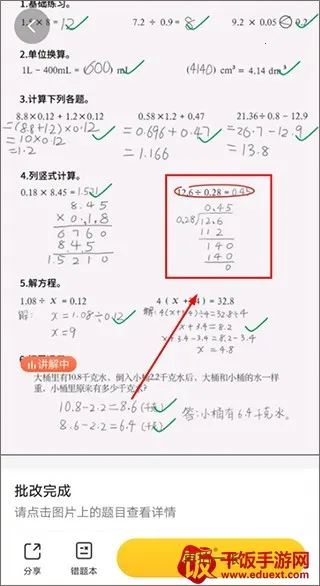 1.基础练习。
7.2 ÷ 0.9 = 8
9.2 × 0.05 < 9.2
2.单位换算。
1L − 400mL = (600) mL (4140) cm³ = 4.14 dm³
3.计算下列各题。
8.8×0.12 + 1.2×0.12 0.58×1.2 + 0.47 21.36÷0.8 − 12.9
=(8.8+1.2)×0.12 =0.696+0.47 =26.7−12.9
=10×0.12 =1.166 =13.8
=1.2
4.列竖式计算。
0.18 × 8.45 = 1.521 12.6 ÷ 0.28 = 0.45
8.45
× 0.18
6760
845
1.5210
0.45
0.28 12.6
112
140
140
0
5.解方程。
1.08 ÷ x = 0.12 4(x+3.4) = 32.8
解: x = 1.08÷0.12 解: 4(x+3.4)÷4=32.8÷4
x = 9 x+3.4=8.2
x+3.4−3.4=8.2−3.4
x=4.8
讲解中
大桶里有10.8千克水，倒入小桶2.2千克水后，大桶和小桶的水一样
重，小桶里原来有多少千克水。
10.8−2.2=8.6(千克)
8.6−2.2=6.4(千克) 答:小桶有6.4千克水。
批改完成
请点击图片上的题目查看详情
分享
错题本
饭
干饭手游网
www.eduext.com